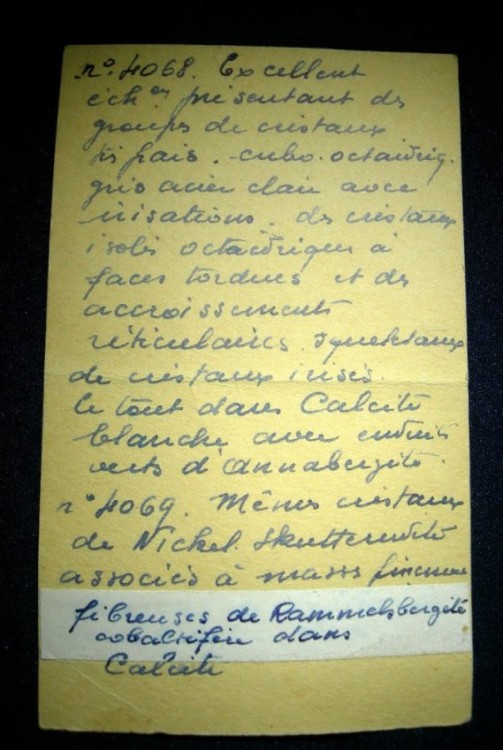 n° 4068. Excellent
éch on présentant des
groupes de cristaux
frais. cubo. octaédriq.
gris acier clair avec
irisations. des cristaux
isolés octaédriques à
faces tordues et des
accroissements
réticulaires. squelettaux
de cristaux irisés.
le tout dans Calcite
blanche avec enduits
verts d'Annabergite.
n° 4069. Mêmes cristaux
de Nickel. Skutterudite
associés à masses finement
fibreuses de Rammelsbergite
cobaltifère dans
Calcite